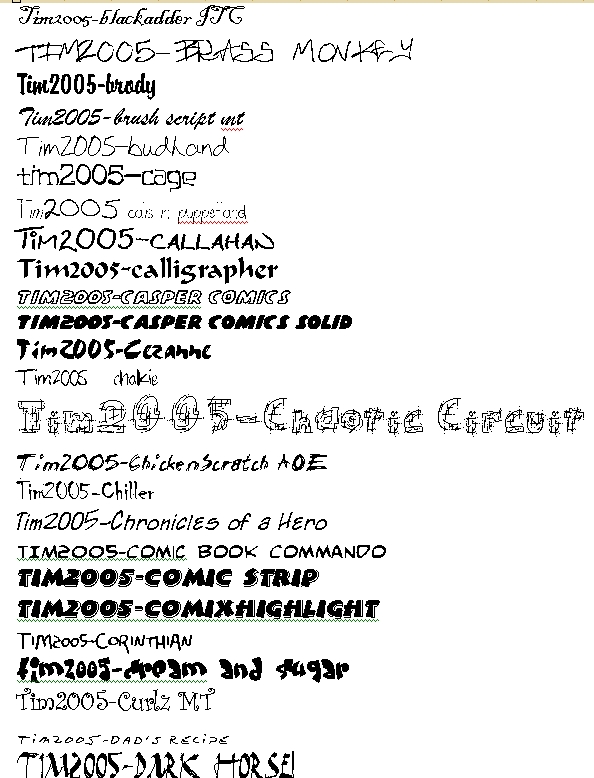 Tim2005-blackadder ITC
TIM2005-BRASS MONKEY
Tim2005-brody
Tim2005-brush script mt
Tim2005-budhand
tim2005-cage
Tim2005
TIM2005-CALLAHAN
Tim2005-calligrapher
TIM2005-CASPER COMICS
TIM2005-CASPER COMICS SOLID
Tim2005-Cezanne
Tim2005 chakie
Tim2005-Chaotic Circuit
Tim2005-ChickenScratch AOE
Tim2005-Chiller
Tim2005-Chronicles of a Hero
TIM2005-COMIC BOOK COMMANDO
TIM2005-COMIC STRIP
TIM2005-COMIXHIGHLIGHT
TIM2005-CORINTHIAN
tim2005-cream and sugar
Tim2005-Curlz MT
TIM2005-DAD'S RECIPE
TIM2005-DARK HORSE